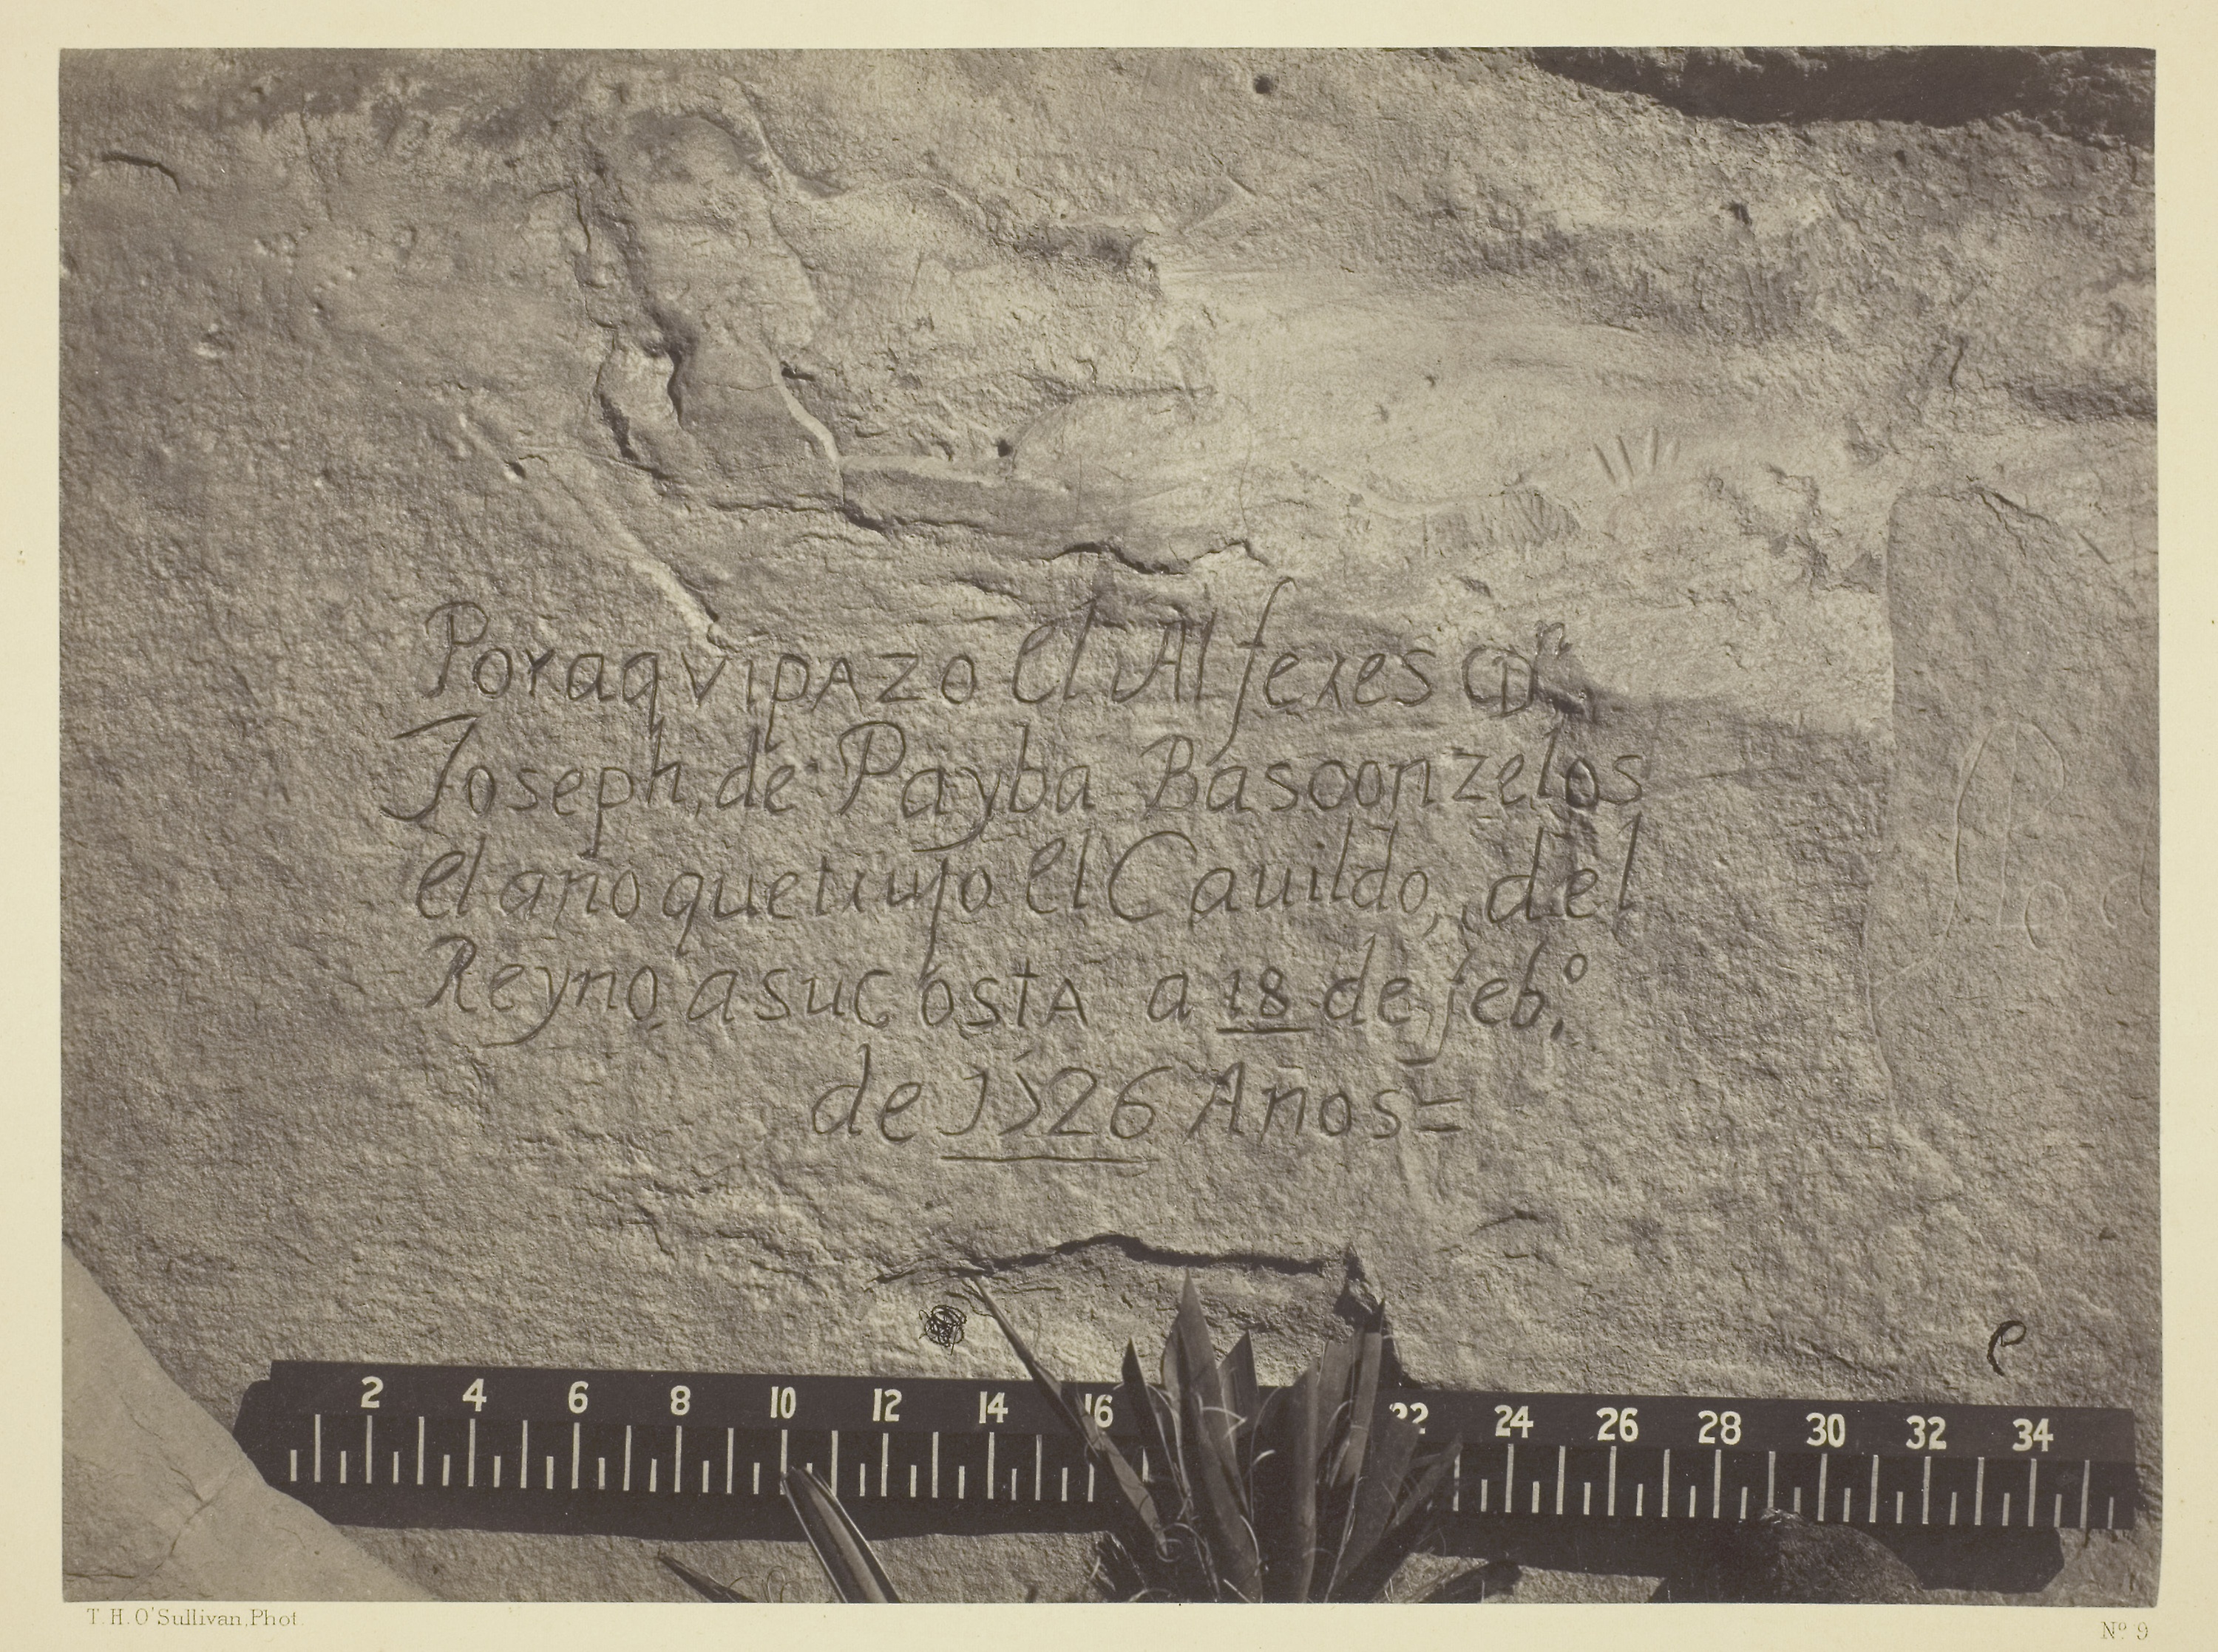 Por aqvi pAzo el Alferes Dn
Joseph, de Payba Basconzelos
el año que trujo el Cauildo, del
Reyno a su costA a 18 de febo
de 1526 Años=
2 4 6 8 10 12 14 16 22 24 26 28 30 32 34
T. H. O'Sullivan, Phot.
No. 9